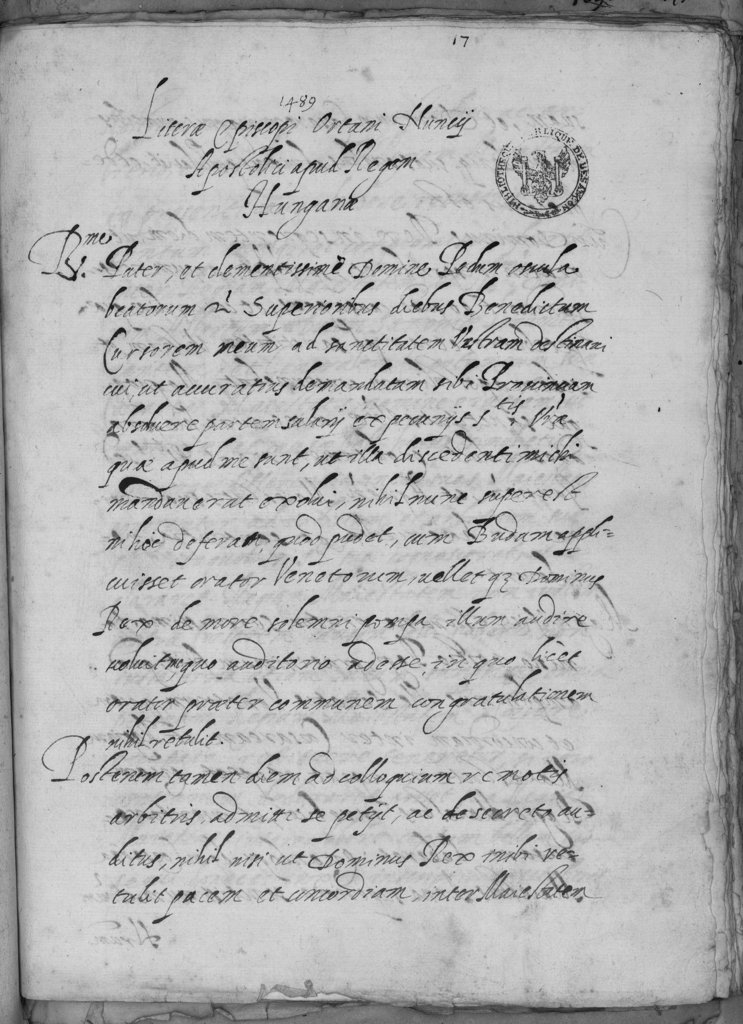 17
1489
Literæ Episcopi Ortani Nuncij
Apostolici apud Regem
Hungariæ
Rme Pater, et clementissime Domine Pedum oscula
beatorum &c. Superioribus diebus Benedictum
Cursorem meum ad sanctitatem Vestram destinavi
cui, ut accuratius demandatam sibi Provinciam
absolvere partem salarij ex pecunijs S.tis Vræ
quæ apud me sunt, ut illa discedenti michi
mandaverat exolui, nihil nunc superest
ni hoc deferam, quod pudet, cum Budam appli=
cuisset orator Venetorum, velletqz Dominus
Rex de more solemni pompa illum audire
voluit quo auditorio adesse, in quo licet
orator præter communem congratulationem
nihil retulit.
Posterem tamen diem ad colloquium remotis
arbitris admitti se petijt, ac de secreto au=
ditus, nihil nisi ut Dominus Rex mihi re=
tulit pacem et concordiam inter Maiestatem
BIBLIOTHEQUE PUBLIQUE DE BESANÇON